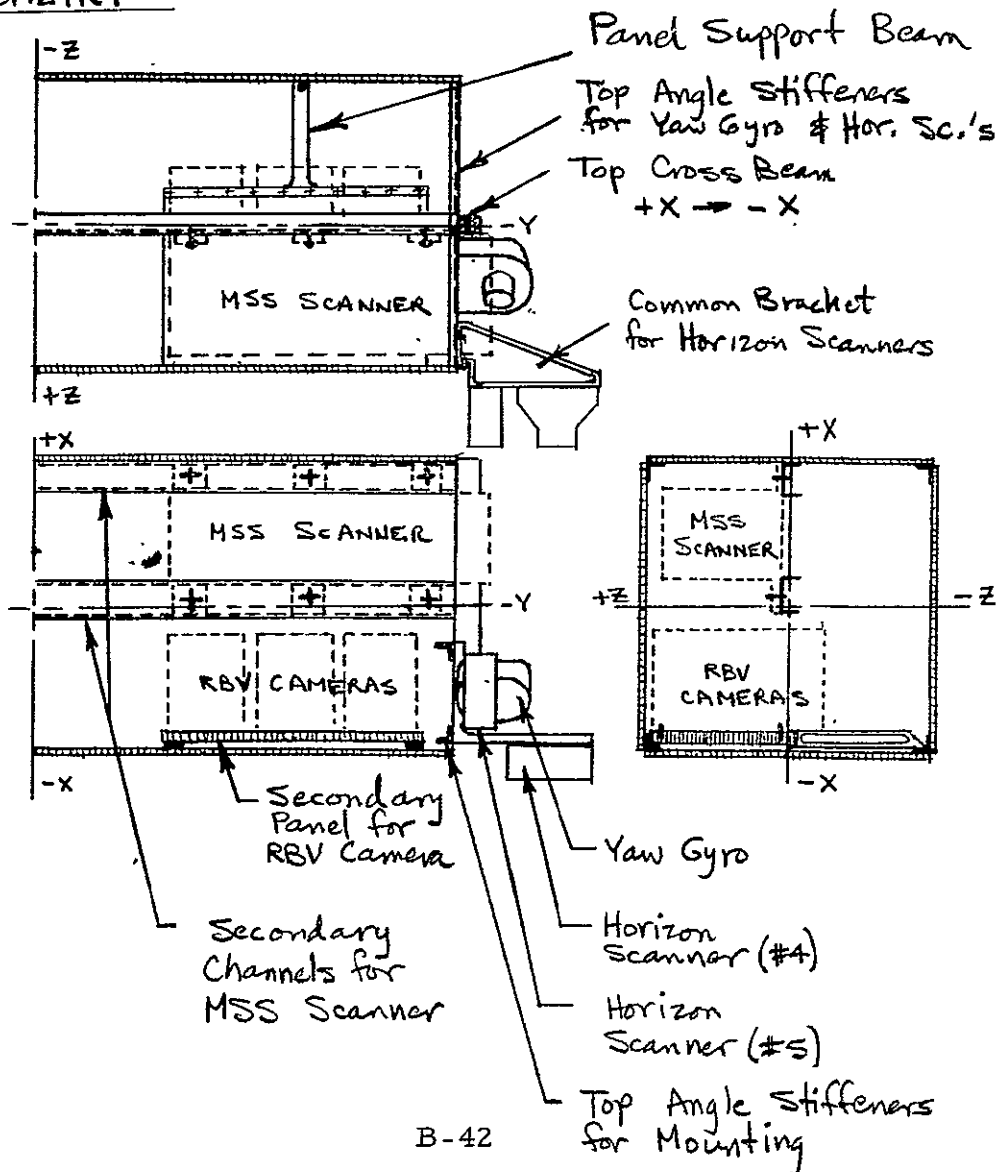 -Z
Panel Support Beam
Top Angle Stiffeners
for Yaw Gyro & Hor. Sc.'s
Top Cross Beam
+X → -X
-Y
MSS SCANNER
Common Bracket
for Horizon Scanners
+Z
+X
MSS SCANNER
-Y
RBV CAMERAS
-X
+X
MSS
SCANNER
+Z
-Z
RBV
CAMERAS
-X
Secondary
Panel for
RBV Camera
Yaw Gyro
Secondary
Channels for
MSS Scanner
Horizon
Scanner (#4)
Horizon
Scanner (#5)
Top Angle Stiffeners
for Mounting
B-42